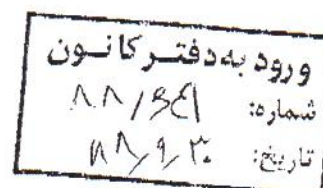 ورود به دفتر کانون
شماره:
تاریخ: ۸۸/۹/۳۰